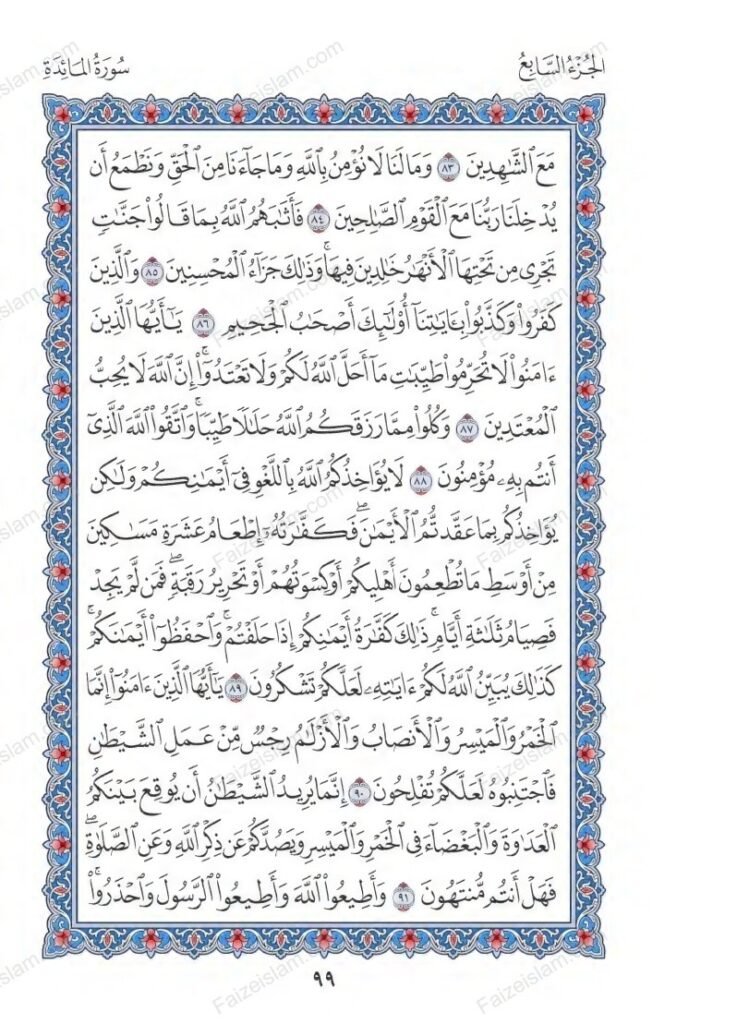 الجُزْءُ السَّابِعُ
سُورَةُ المَائِدَةِ
مَعَ ٱلشَّٰهِدِينَ ٨٣ وَمَا لَنَا لَا نُؤْمِنُ بِٱللَّهِ وَمَا جَآءَنَا مِنَ ٱلْحَقِّ وَنَطْمَعُ أَن
يُدْخِلَنَا رَبُّنَا مَعَ ٱلْقَوْمِ ٱلصَّٰلِحِينَ ٨٤ فَأَثَٰبَهُمُ ٱللَّهُ بِمَا قَالُوا۟ جَنَّٰتٍ
تَجْرِى مِن تَحْتِهَا ٱلْأَنْهَٰرُ خَٰلِدِينَ فِيهَا ۚ وَذَٰلِكَ جَزَآءُ ٱلْمُحْسِنِينَ ٨٥ وَٱلَّذِينَ
كَفَرُوا۟ وَكَذَّبُوا۟ بِـَٔايَٰتِنَآ أُو۟لَٰٓئِكَ أَصْحَٰبُ ٱلْجَحِيمِ ٨٦ يَٰٓأَيُّهَا ٱلَّذِينَ
ءَامَنُوا۟ لَا تُحَرِّمُوا۟ طَيِّبَٰتِ مَآ أَحَلَّ ٱللَّهُ لَكُمْ وَلَا تَعْتَدُوٓا۟ ۚ إِنَّ ٱللَّهَ لَا يُحِبُّ
ٱلْمُعْتَدِينَ ٨٧ وَكُلُوا۟ مِمَّا رَزَقَكُمُ ٱللَّهُ حَلَٰلًا طَيِّبًا ۚ وَٱتَّقُوا۟ ٱللَّهَ ٱلَّذِىٓ
أَنتُم بِهِۦ مُؤْمِنُونَ ٨٨ لَا يُؤَاخِذُكُمُ ٱللَّهُ بِٱللَّغْوِ فِىٓ أَيْمَٰنِكُمْ وَلَٰكِن
يُؤَاخِذُكُم بِمَا عَقَّدتُّمُ ٱلْأَيْمَٰنَ ۖ فَكَفَّٰرَتُهُۥٓ إِطْعَامُ عَشَرَةِ مَسَٰكِينَ
مِنْ أَوْسَطِ مَا تُطْعِمُونَ أَهْلِيكُمْ أَوْ كِسْوَتُهُمْ أَوْ تَحْرِيرُ رَقَبَةٍ ۖ فَمَن لَّمْ يَجِدْ
فَصِيَامُ ثَلَٰثَةِ أَيَّامٍ ۚ ذَٰلِكَ كَفَّٰرَةُ أَيْمَٰنِكُمْ إِذَا حَلَفْتُمْ ۚ وَٱحْفَظُوٓا۟ أَيْمَٰنَكُمْ ۚ
كَذَٰلِكَ يُبَيِّنُ ٱللَّهُ لَكُمْ ءَايَٰتِهِۦ لَعَلَّكُمْ تَشْكُرُونَ ٨٩ يَٰٓأَيُّهَا ٱلَّذِينَ ءَامَنُوٓا۟ إِنَّمَا
ٱلْخَمْرُ وَٱلْمَيْسِرُ وَٱلْأَنصَابُ وَٱلْأَزْلَٰمُ رِجْسٌ مِّنْ عَمَلِ ٱلشَّيْطَٰنِ
فَٱجْتَنِبُوهُ لَعَلَّكُمْ تُفْلِحُونَ ٩٠ إِنَّمَا يُرِيدُ ٱلشَّيْطَٰنُ أَن يُوقِعَ بَيْنَكُمُ
ٱلْعَدَٰوَةَ وَٱلْبَغْضَآءَ فِى ٱلْخَمْرِ وَٱلْمَيْسِرِ وَيَصُدَّكُمْ عَن ذِكْرِ ٱللَّهِ وَعَنِ ٱلصَّلَوٰةِ ۖ
فَهَلْ أَنتُم مُّنتَهُونَ ٩١ وَأَطِيعُوا۟ ٱللَّهَ وَأَطِيعُوا۟ ٱلرَّسُولَ وَٱحْذَرُوا۟ ۚ
٩٩
Faizeislam.com